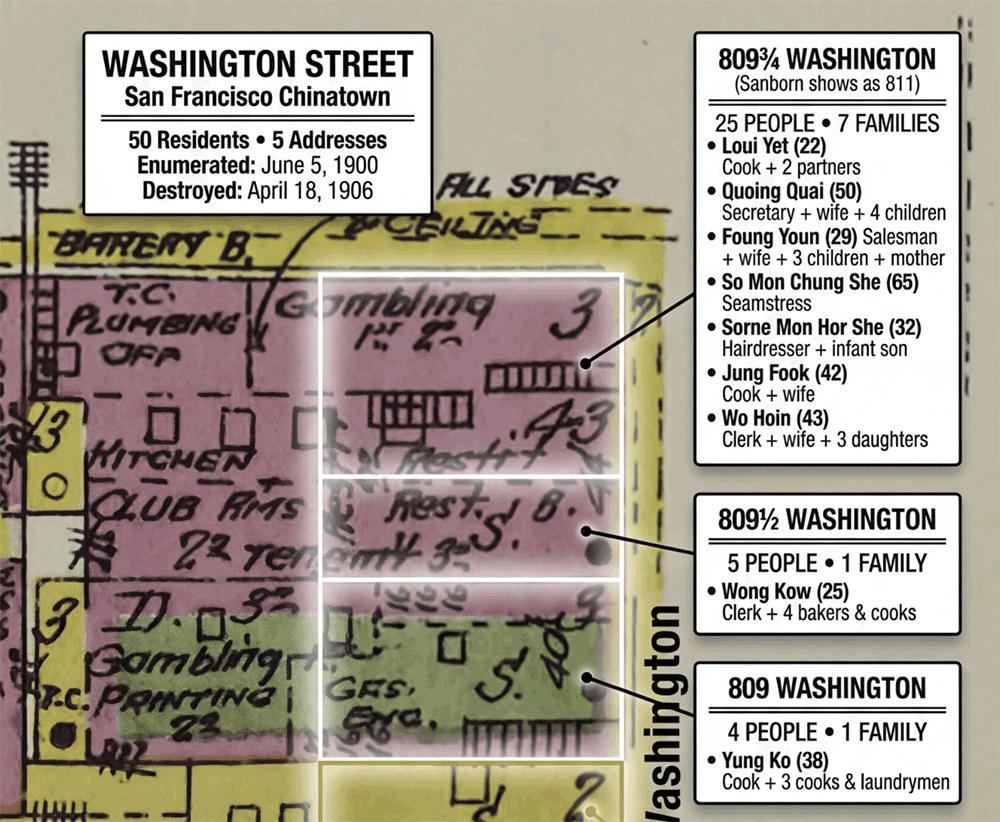 WASHINGTON STREET
San Francisco Chinatown
50 Residents • 5 Addresses
Enumerated: June 5, 1900
Destroyed: April 18, 1906
809¾ WASHINGTON
(Sanborn shows as 811)
25 PEOPLE • 7 FAMILIES
• Loui Yet (22)
Cook + 2 partners
• Quoing Quai (50)
Secretary + wife + 4 children
• Foung Youn (29) Salesman
+ wife + 3 children + mother
• So Mon Chung She (65)
Seamstress
• Sorne Mon Hor She (32)
Hairdresser + infant son
• Jung Fook (42)
Cook + wife
• Wo Hoin (43)
Clerk + wife + 3 daughters
809½ WASHINGTON
5 PEOPLE • 1 FAMILY
• Wong Kow (25)
Clerk + 4 bakers & cooks
809 WASHINGTON
4 PEOPLE • 1 FAMILY
• Yung Ko (38)
Cook + 3 cooks & laundrymen
ALL SIDES
& CEILING
BATERY B.
T.C.
PLUMBING
OFF
Gambling
3
1st 2d
3
KITCHEN
43
Restrt
CLUB RMS
Rest. B.
S.
2d Tenemt 3d
3
D. 3d
16 16 16
Gambling
S. 40
T.C.
PRINTING
2d
GAS.
ENG.
S. 2
Washington